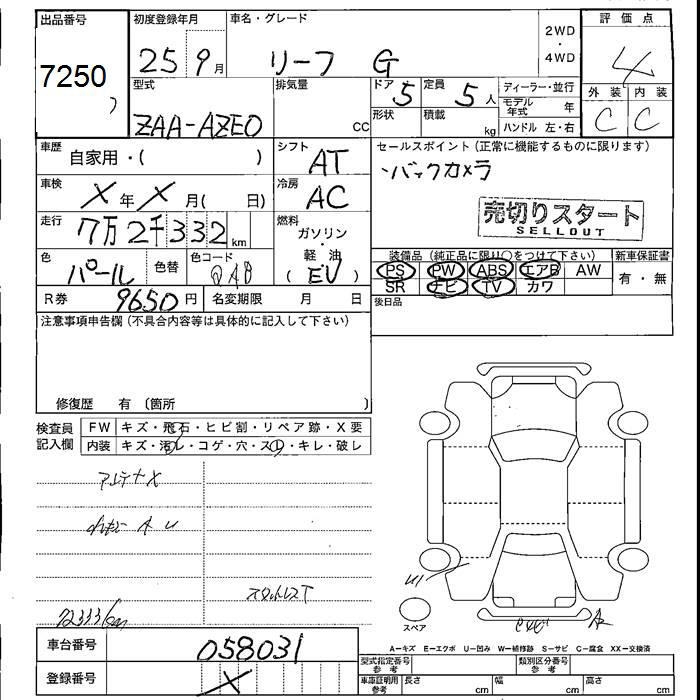 出品番号 初度登録年月 車名・グレード 評価点
7250 25 9月 リーフ G 2WD・4WD 4
型式 排気量 ドア 定員 ディーラー・並行 外装 内装
ZAA-AZE0 CC 5 5人 モデル年式 年 C C
形状 積載 kg ハンドル 左・右
車歴 自家用・( ) シフト AT セールスポイント(正常に機能するものに限ります)
バックカメラ
車検 X年X月( 日) 冷房 AC
売切りスタート
SELLOUT
走行 7万2千332km 燃料 ガソリン・軽油 (EV)
装備品(純正品に限り○をつけて下さい) 新車保証書
色 パール 色替 色コード QAB
PS PW ABS エアB AW 有・無
SR ナビ TV カワ
R券 9650円 名変期限 月 日 後日品
注意事項申告欄(不具合内容等は具体的に記入して下さい)
修復歴 有 〔箇所 〕
検査員記入欄 FW キズ・飛石・ヒビ割・リペア跡・X要
内装 キズ・汚レ・コゲ・穴・スレ・キレ・破レ
アンテナX
スタットレスT
72333km
スペア
A
A−キズ E−エクボ U−凹み W−補修跡 S−サビ C−腐食 XX−交換済
車台番号 058031
登録番号 X
型式指定番号 参考 類別区分番号 参考
車庫証明用 参考 長さ cm 幅 cm 高さ cm